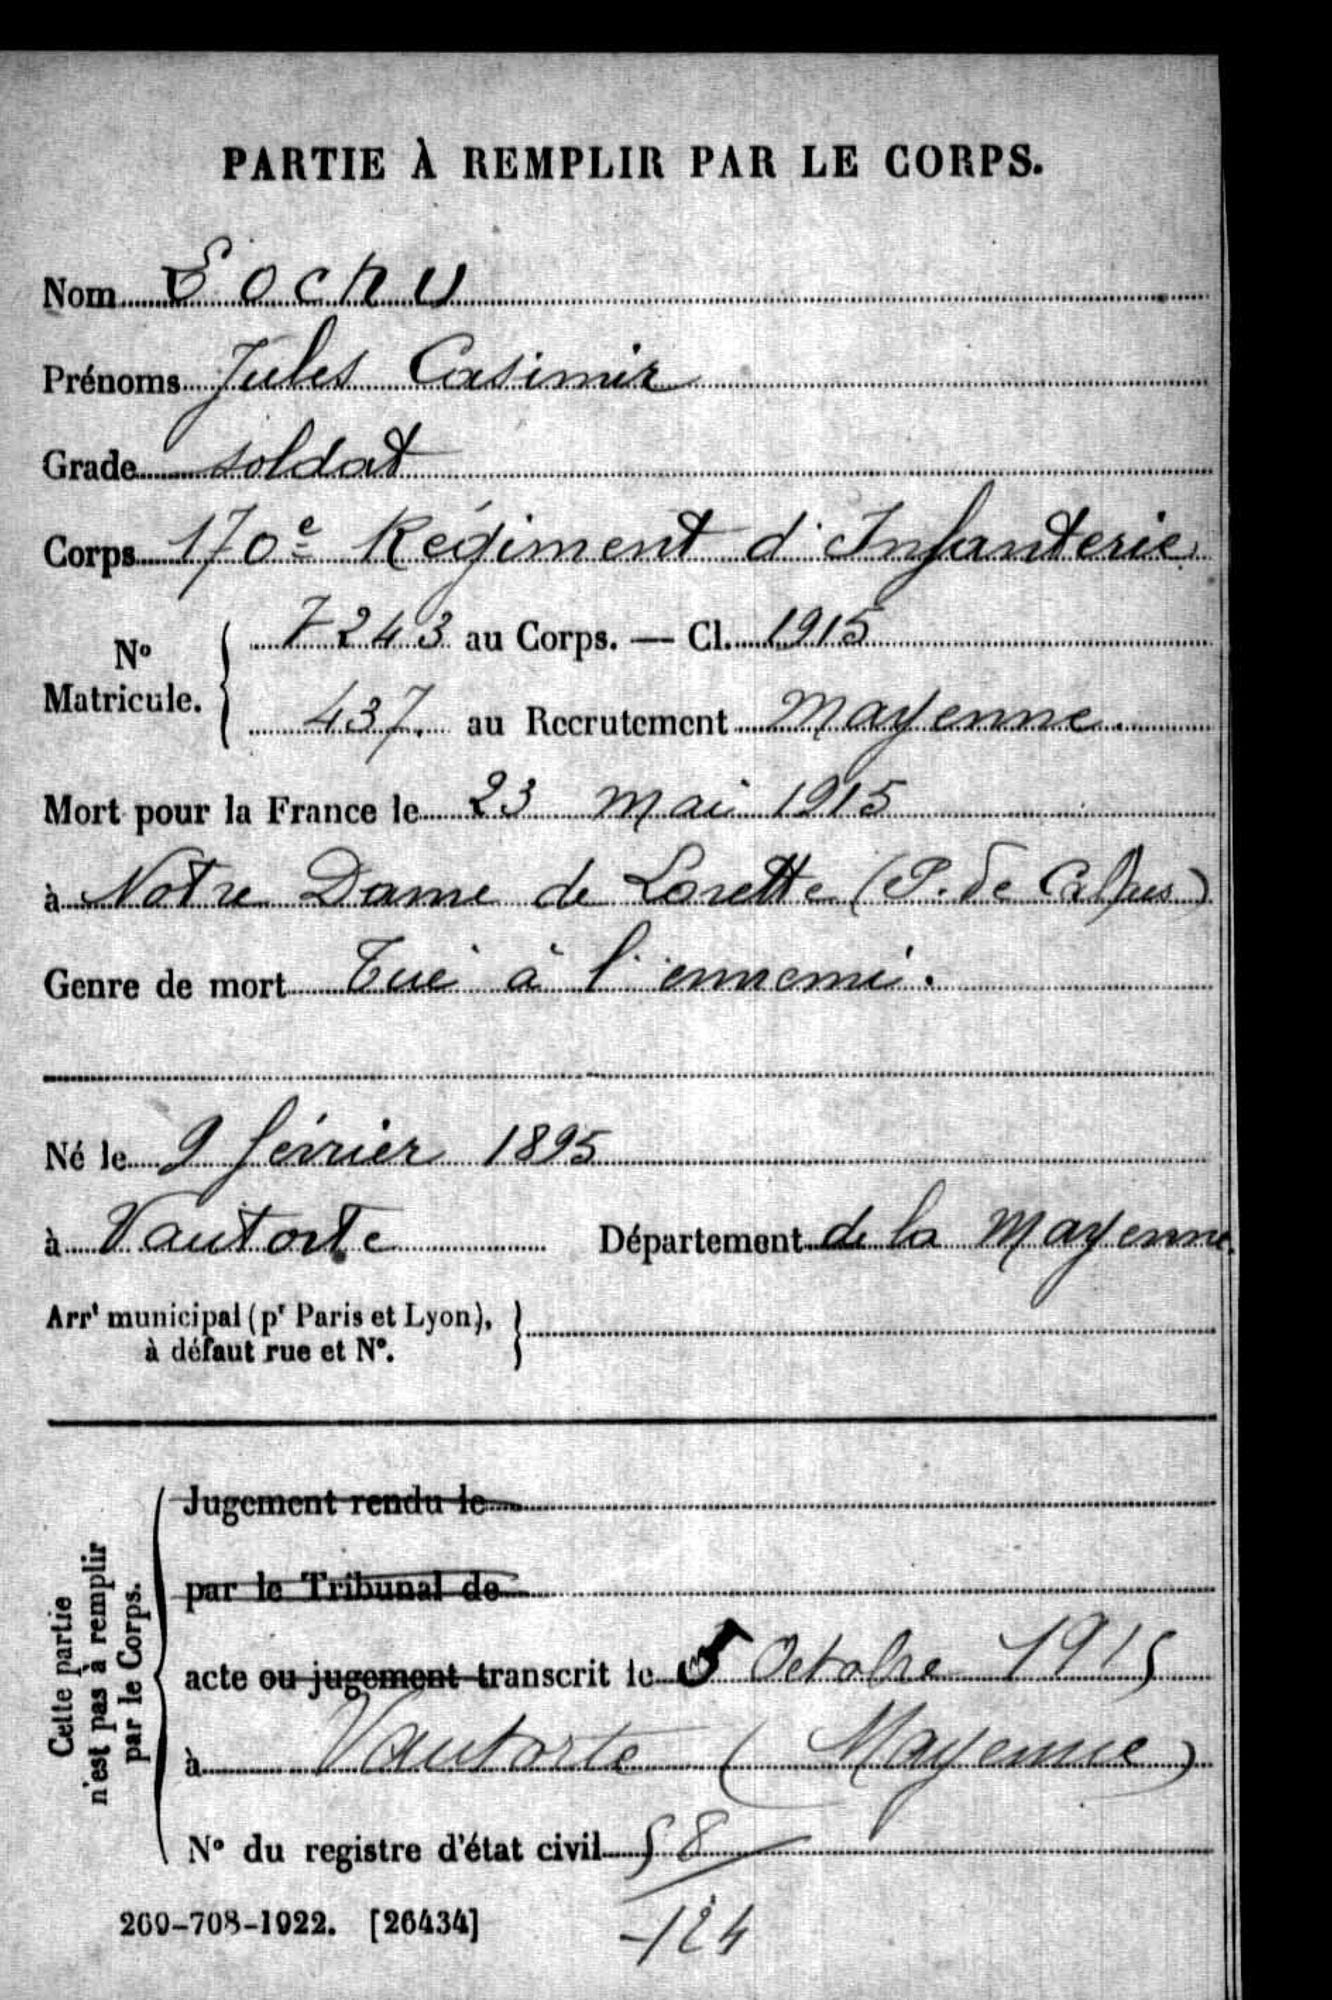 PARTIE À REMPLIR PAR LE CORPS.
Nom Cochu
Prénoms Jules Casimir
Grade soldat
Corps 170e Régiment d'Infanterie
No Matricule. 7243 au Corps. — Cl. 1915
437. au Recrutement Mayenne.
Mort pour la France le 23 mai 1915
à Notre Dame de Lorette (P. de Calais)
Genre de mort Tué à l'ennemi.
Né le 9 février 1895
à Vautorte Département de la Mayenne
Arrt municipal (pr Paris et Lyon),
à défaut rue et No.
Cette partie
n'est pas à remplir
par le Corps.
Jugement rendu le
par le Tribunal de
acte ou jugement transcrit le 5 Octobre 1915
à Vautorte (Mayenne)
No du registre d'état civil 58
269-708-1922. [26434]
124